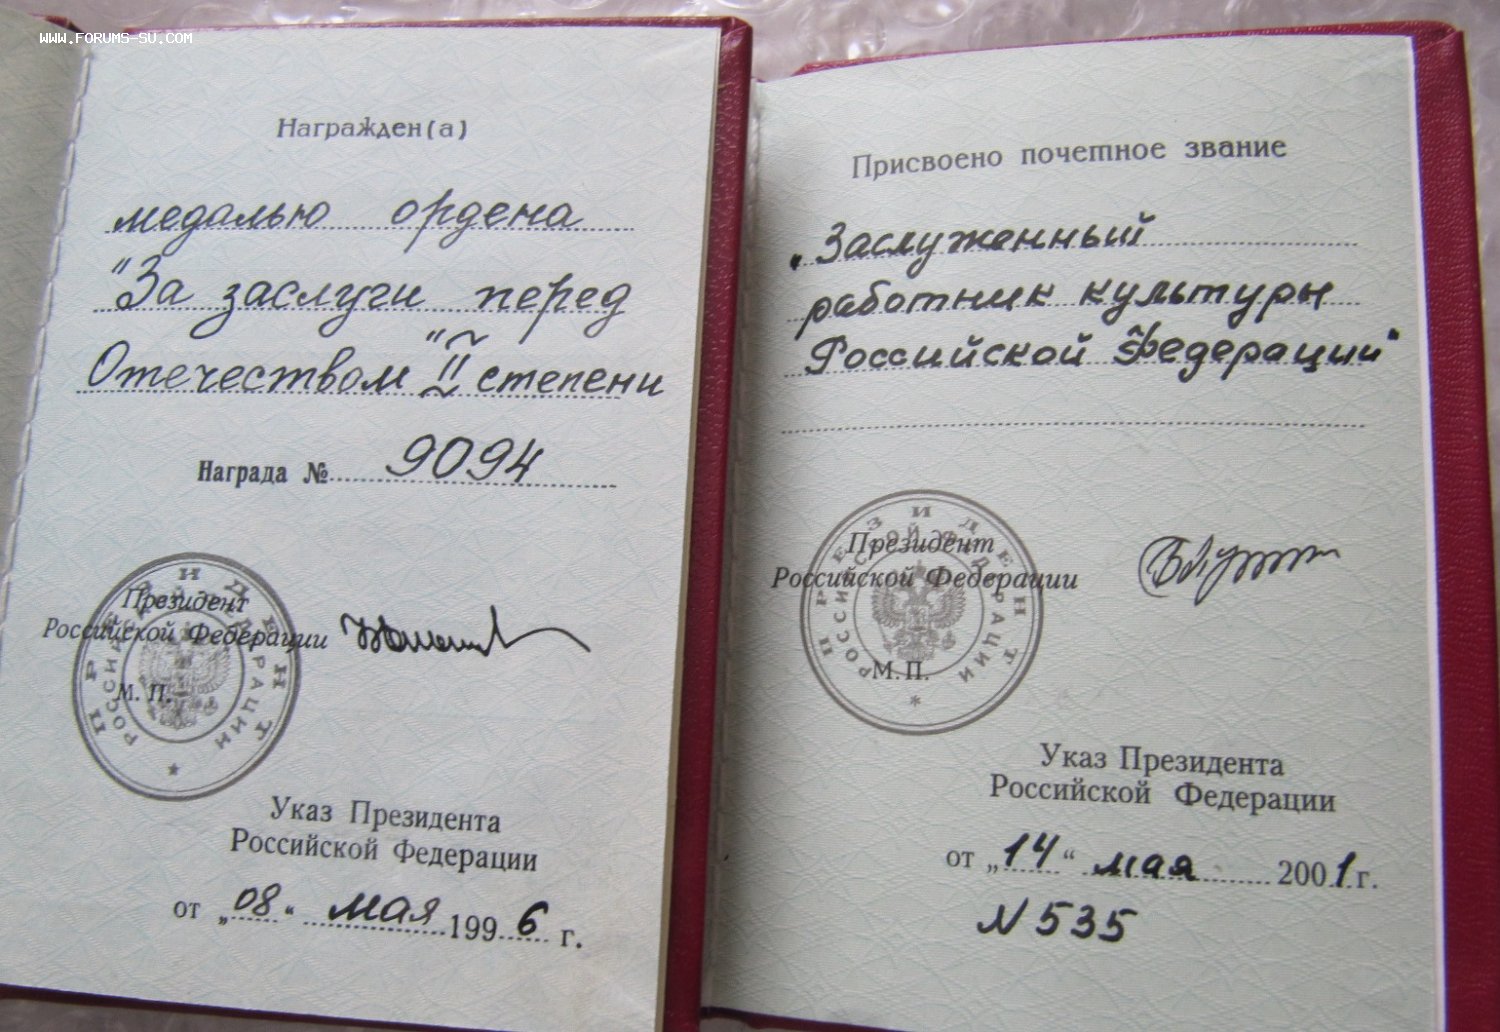 WWW.FORUMS-SU.COM
Награжден(а)
медалью ордена
"За заслуги перед
Отечеством" II степени
Награда № 9094
Президент
Российской Федерации
М. П.
ПРЕЗИДЕНТ
РОССИЙСКОЙ ФЕДЕРАЦИИ
Указ Президента
Российской Федерации
от „08“ мая 1996 г.
Присвоено почетное звание
„Заслуженный
работник культуры
Российской Федерации"
Президент
Российской Федерации
М. П.
ПРЕЗИДЕНТ
РОССИЙСКОЙ ФЕДЕРАЦИИ
Указ Президента
Российской Федерации
от „14“ мая 2001 г.
N 535